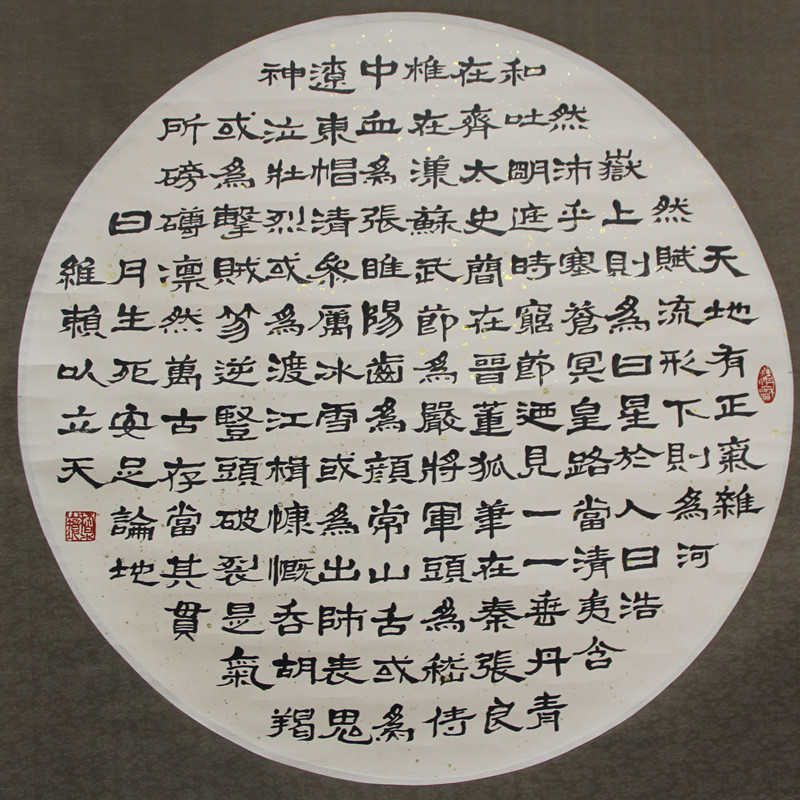 天地有正氣雜
然賦流形下則為河
嶽上則為日星於人曰浩
然沛乎塞蒼冥皇路當清夷含
和吐明庭時窮節迺見一一垂丹青
在齊太史簡在晉董狐筆在秦張良
椎在漢蘇武節為嚴將軍頭為嵇侍
中血為張睢陽齒為顏常山舌或為
遼東帽清操厲冰雪或為出師表鬼
神泣壯烈或為渡江楫慷慨吞胡羯
或為擊賊笏逆豎頭破裂是氣
所磅礴凜然萬古存當其貫
日月生死安足論地
維賴以立天